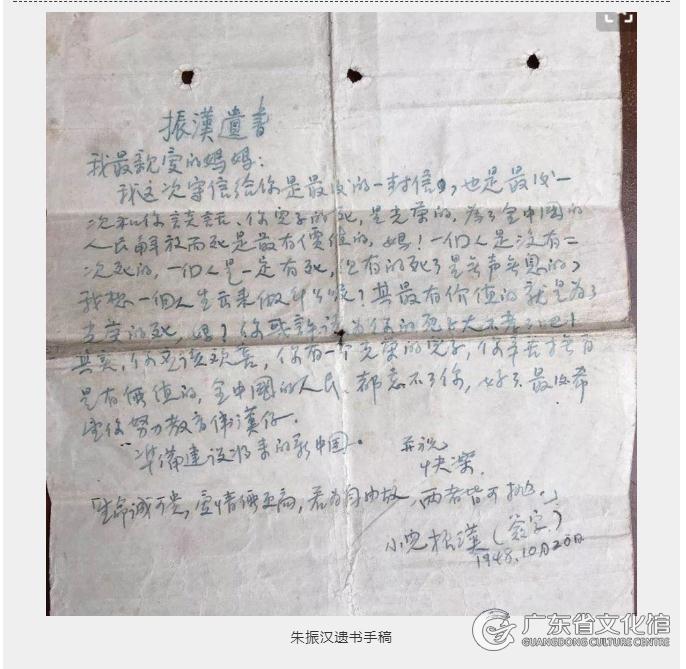 振漢遺書
我最親愛的媽媽：
我这次寫信給你是最後的一封信，也是最後一
次和你談話，你兒子的死，是光荣的，為了全中國的
人民解放而死是最有價值的，媽！一個人是沒有二
次死的，一個人是一定有死，但有的死了是無声無息的，
我想一個人生出來做什么呢？其最有价值的就是为了
光荣的死，媽！你或許認为你的死
其实，你应该欢喜，你有一个光荣的兒子，你辛苦撫育
是有價值的，全中國的人民，都忘不了你，好了最後希
望你努力教育偉漢仔．
準備建设将来的新中国．
并祝
快樂．
生命诚可贵，爱情價更高，若为自由故，两者皆可抛。」
小兒振漢（簽字）
1948.10月20日
广东省文化馆
GUANGDONG CULTURE CENTER
朱振汉遗书手稿